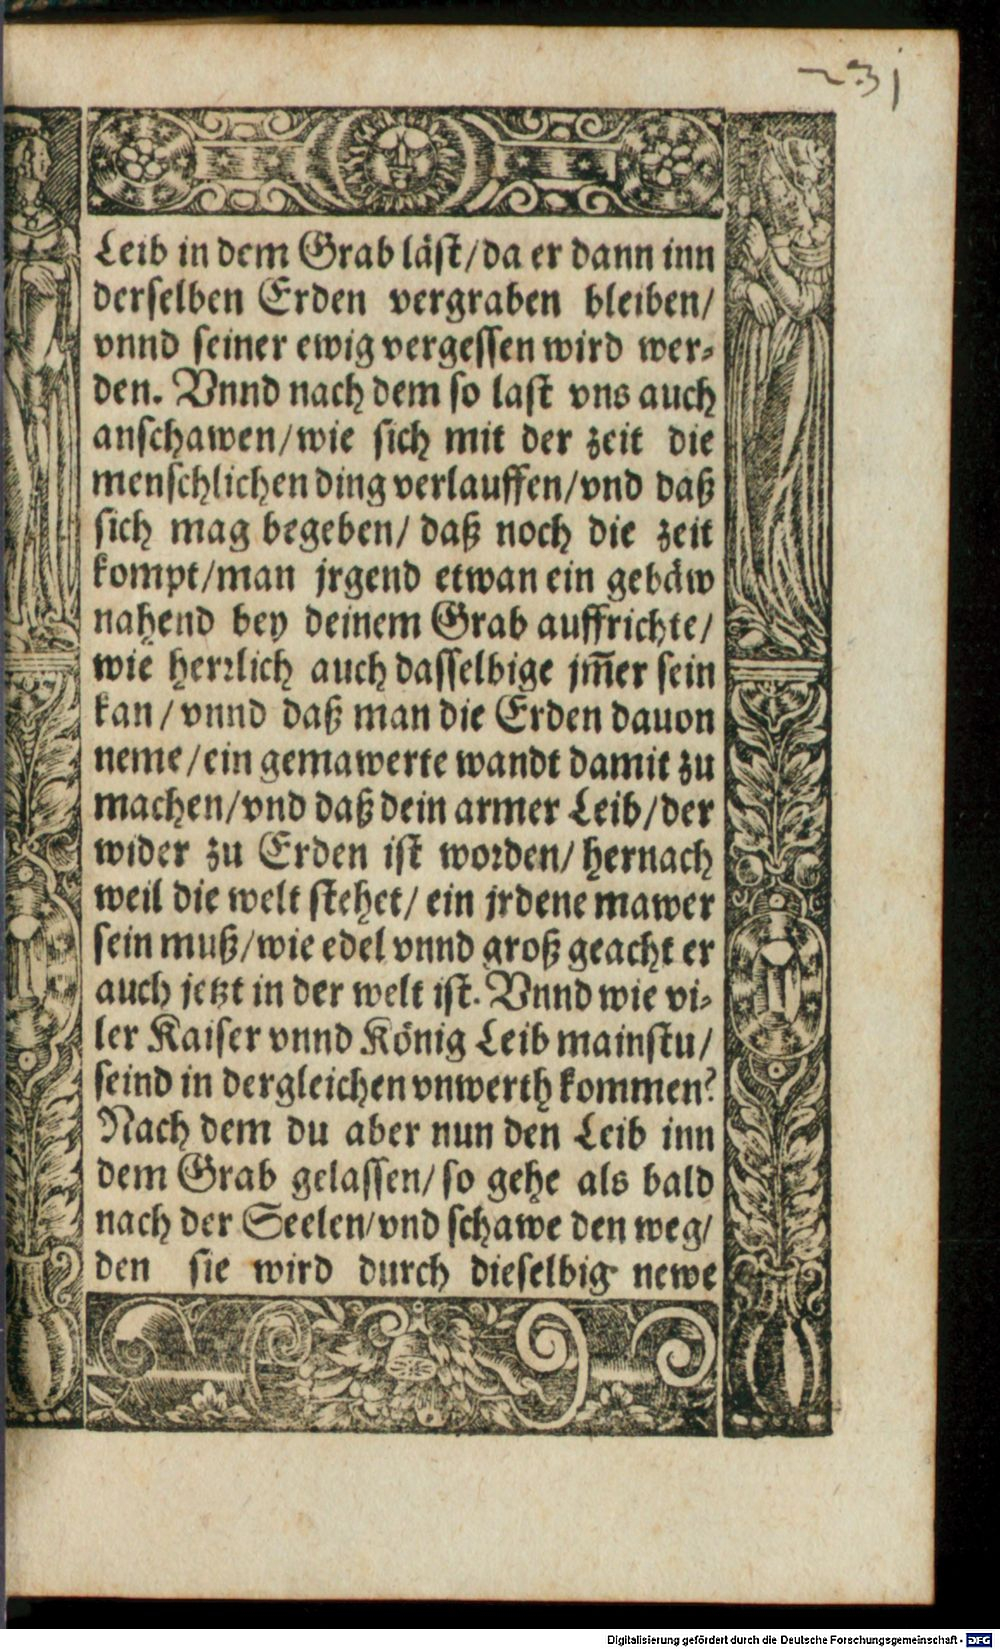 231
Leib in dem Grab läst/da er dann inn
derselben Erden vergraben bleiben/
vnnd seiner ewig vergessen wird wer-
den. Vnnd nach dem so last vns auch
anschawen/wie sich mit der zeit die
menschlichen ding verlauffen/vnd daß
sich mag begeben/ daß noch die zeit
kompt/man jrgend etwan ein gebäw
nahend bey deinem Grab auffrichte/
wie herrlich auch dasselbige jm̃er sein
kan/vnnd daß man die Erden dauon
neme/ein gemawerte wandt damit zu
machen/vnd daß dein armer Leib/der
wider zu Erden ist worden/hernach
weil die welt stehet/ ein jrdene mawer
sein muß/wie edel vnnd groß geacht er
auch jetzt in der welt ist. Vnnd wie vi-
ler Kaiser vnnd König Leib mainstu/
seind in dergleichen vnwerth kommen?
Nach dem du aber nun den Leib inn
dem Grab gelassen/so gehe als bald
nach der Seelen/vnd schawe den weg/
den sie wird durch dieselbig newe
Digitalisierung gefördert durch die Deutsche Forschungsgemeinschaft - DFG